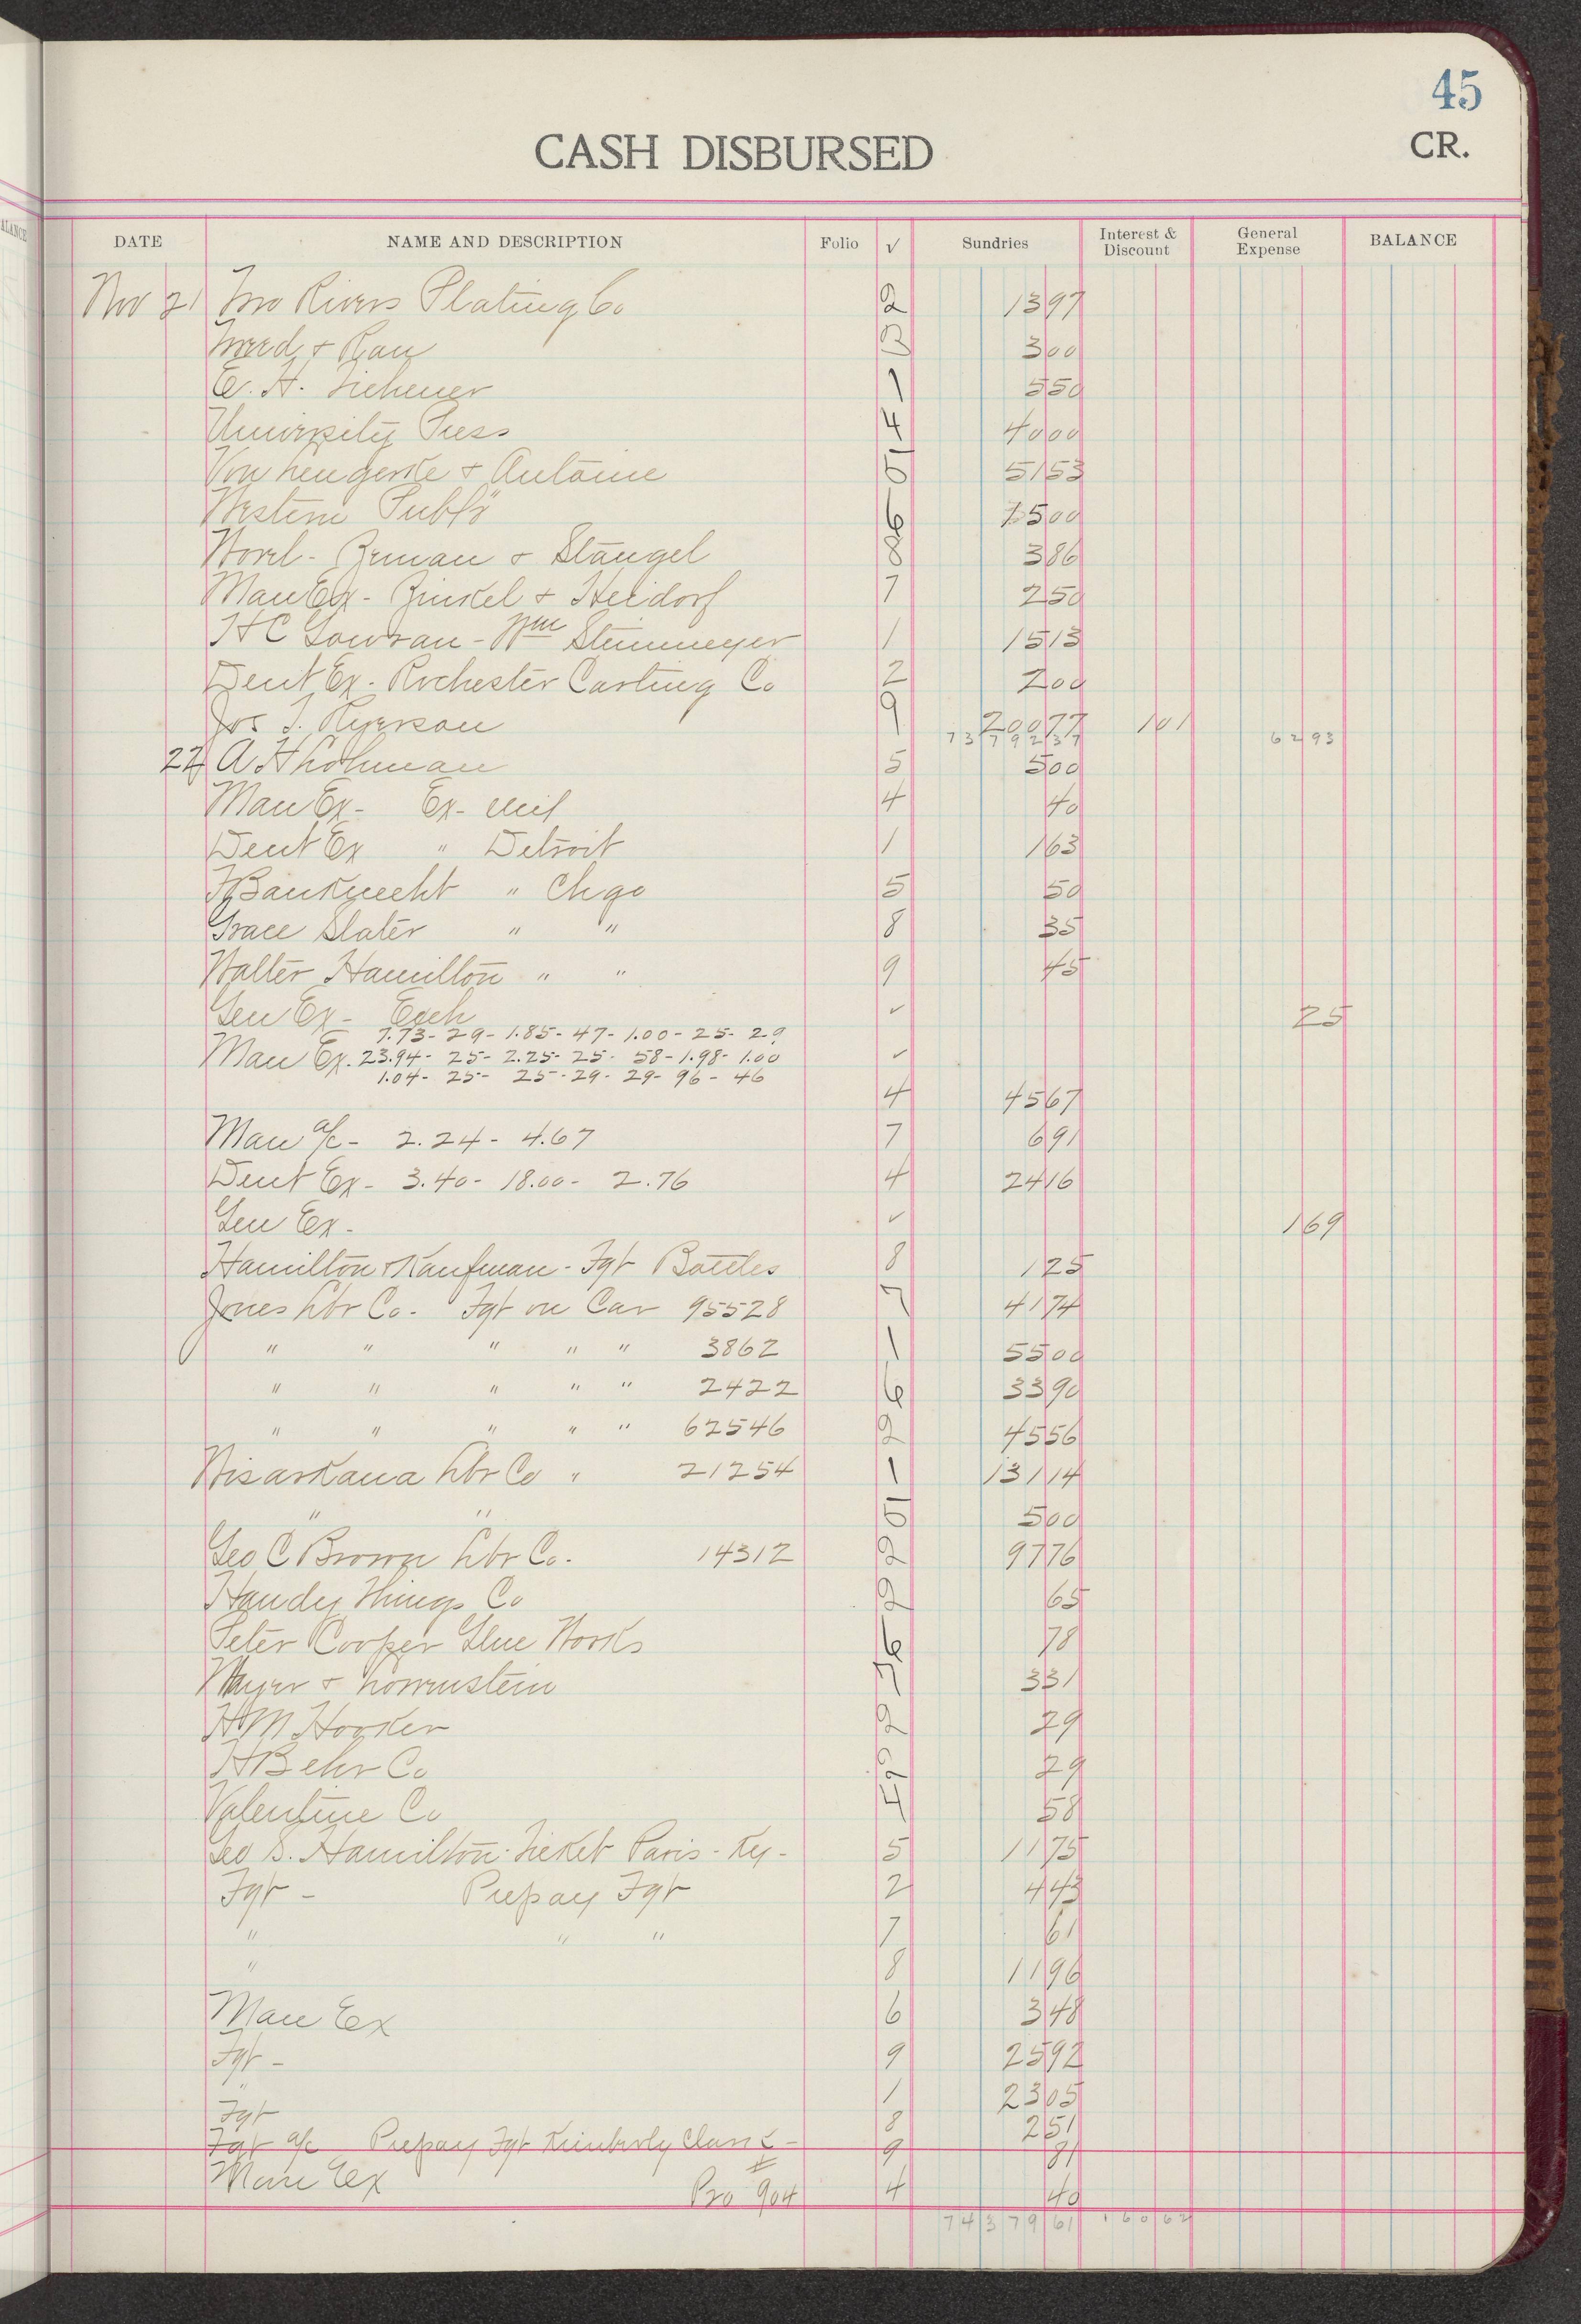 45
CASH DISBURSED
CR.
DATE NAME AND DESCRIPTION Folio √ Sundries Interest & Discount General Expense BALANCE
Nov 21 Two Rivers Plating Co 2 13 97
& Rau 3 00
E. H. Tichener 1 5 50
University Press 4 40 00
Von Lengerke & Antoine 5 51 53
Western Publg 6 75 00
Novel - Zeman & Stangel 8 3 86
Man Ex - Zinkel & Heidorf 7 2 50
H C Gowran - Wm Steinmeyer 1 15 13
Dent Ex - Rochester Casting Co 2 2 00
Jos T. Ryerson 9 200 77 1 01
73 792 37 62 93
22 A H Lohman 5 5 00
Man Ex - Ex - Mil 4 40
Dent Ex " Detroit 1 1 63
F Bauknecht " Chgo 5 50
Grace Slater " " 8 35
Walter Hamilton " " 9 45
Gen Ex - Exch ✓ 25
7.73 - 29 - 1.85 - 47 - 1.00 - 25 - 29
Man Ex. 23.94 - 25 - 2.25 - 25 - 58 - 1.98 - 1.00 ✓
1.04 - 25 - 25 - 29 - 29 - 96 - 46
4 45 67
Man a/c - 2.24 - 4.67 7 6 91
Dent Ex - 3.40 - 18.00 - 2.76 4 24 16
Gen Ex - ✓ 1 69
Hamilton & Kaufman - Fgt Battles 8 1 25
Jones Lbr Co. Fgt on Car 95528 7 41 74
" " " " " 3862 1 55 00
" " " " " 2422 6 33 90
" " " " " 62546 2 45 56
Wisarkana Lbr Co " 21254 1 131 14
" " 5 5 00
Geo C Brown Lbr Co. 14312 2 97 76
Handy Things Co 2 65
Peter Cooper Glue Works 6 78
Mayer & Lowenstein 7 3 31
H M Hooker 2 29
H Behr Co 29
Valentine Co 4 58
Geo S. Hamilton - Ticket Paris - Ky - 5 11 75
Fgt - Prepay Fgt 2 4 43
" " " 7 61
" 8 11 96
Man Ex 6 3 48
Fgt - 9 25 92
" 1 23 05
Fgt 8 2 51
Fgt a/c Prepay Fgt Kimberly Clark - 9 81
Man Ex Pro # 904 4 40
74 379 61 160 62